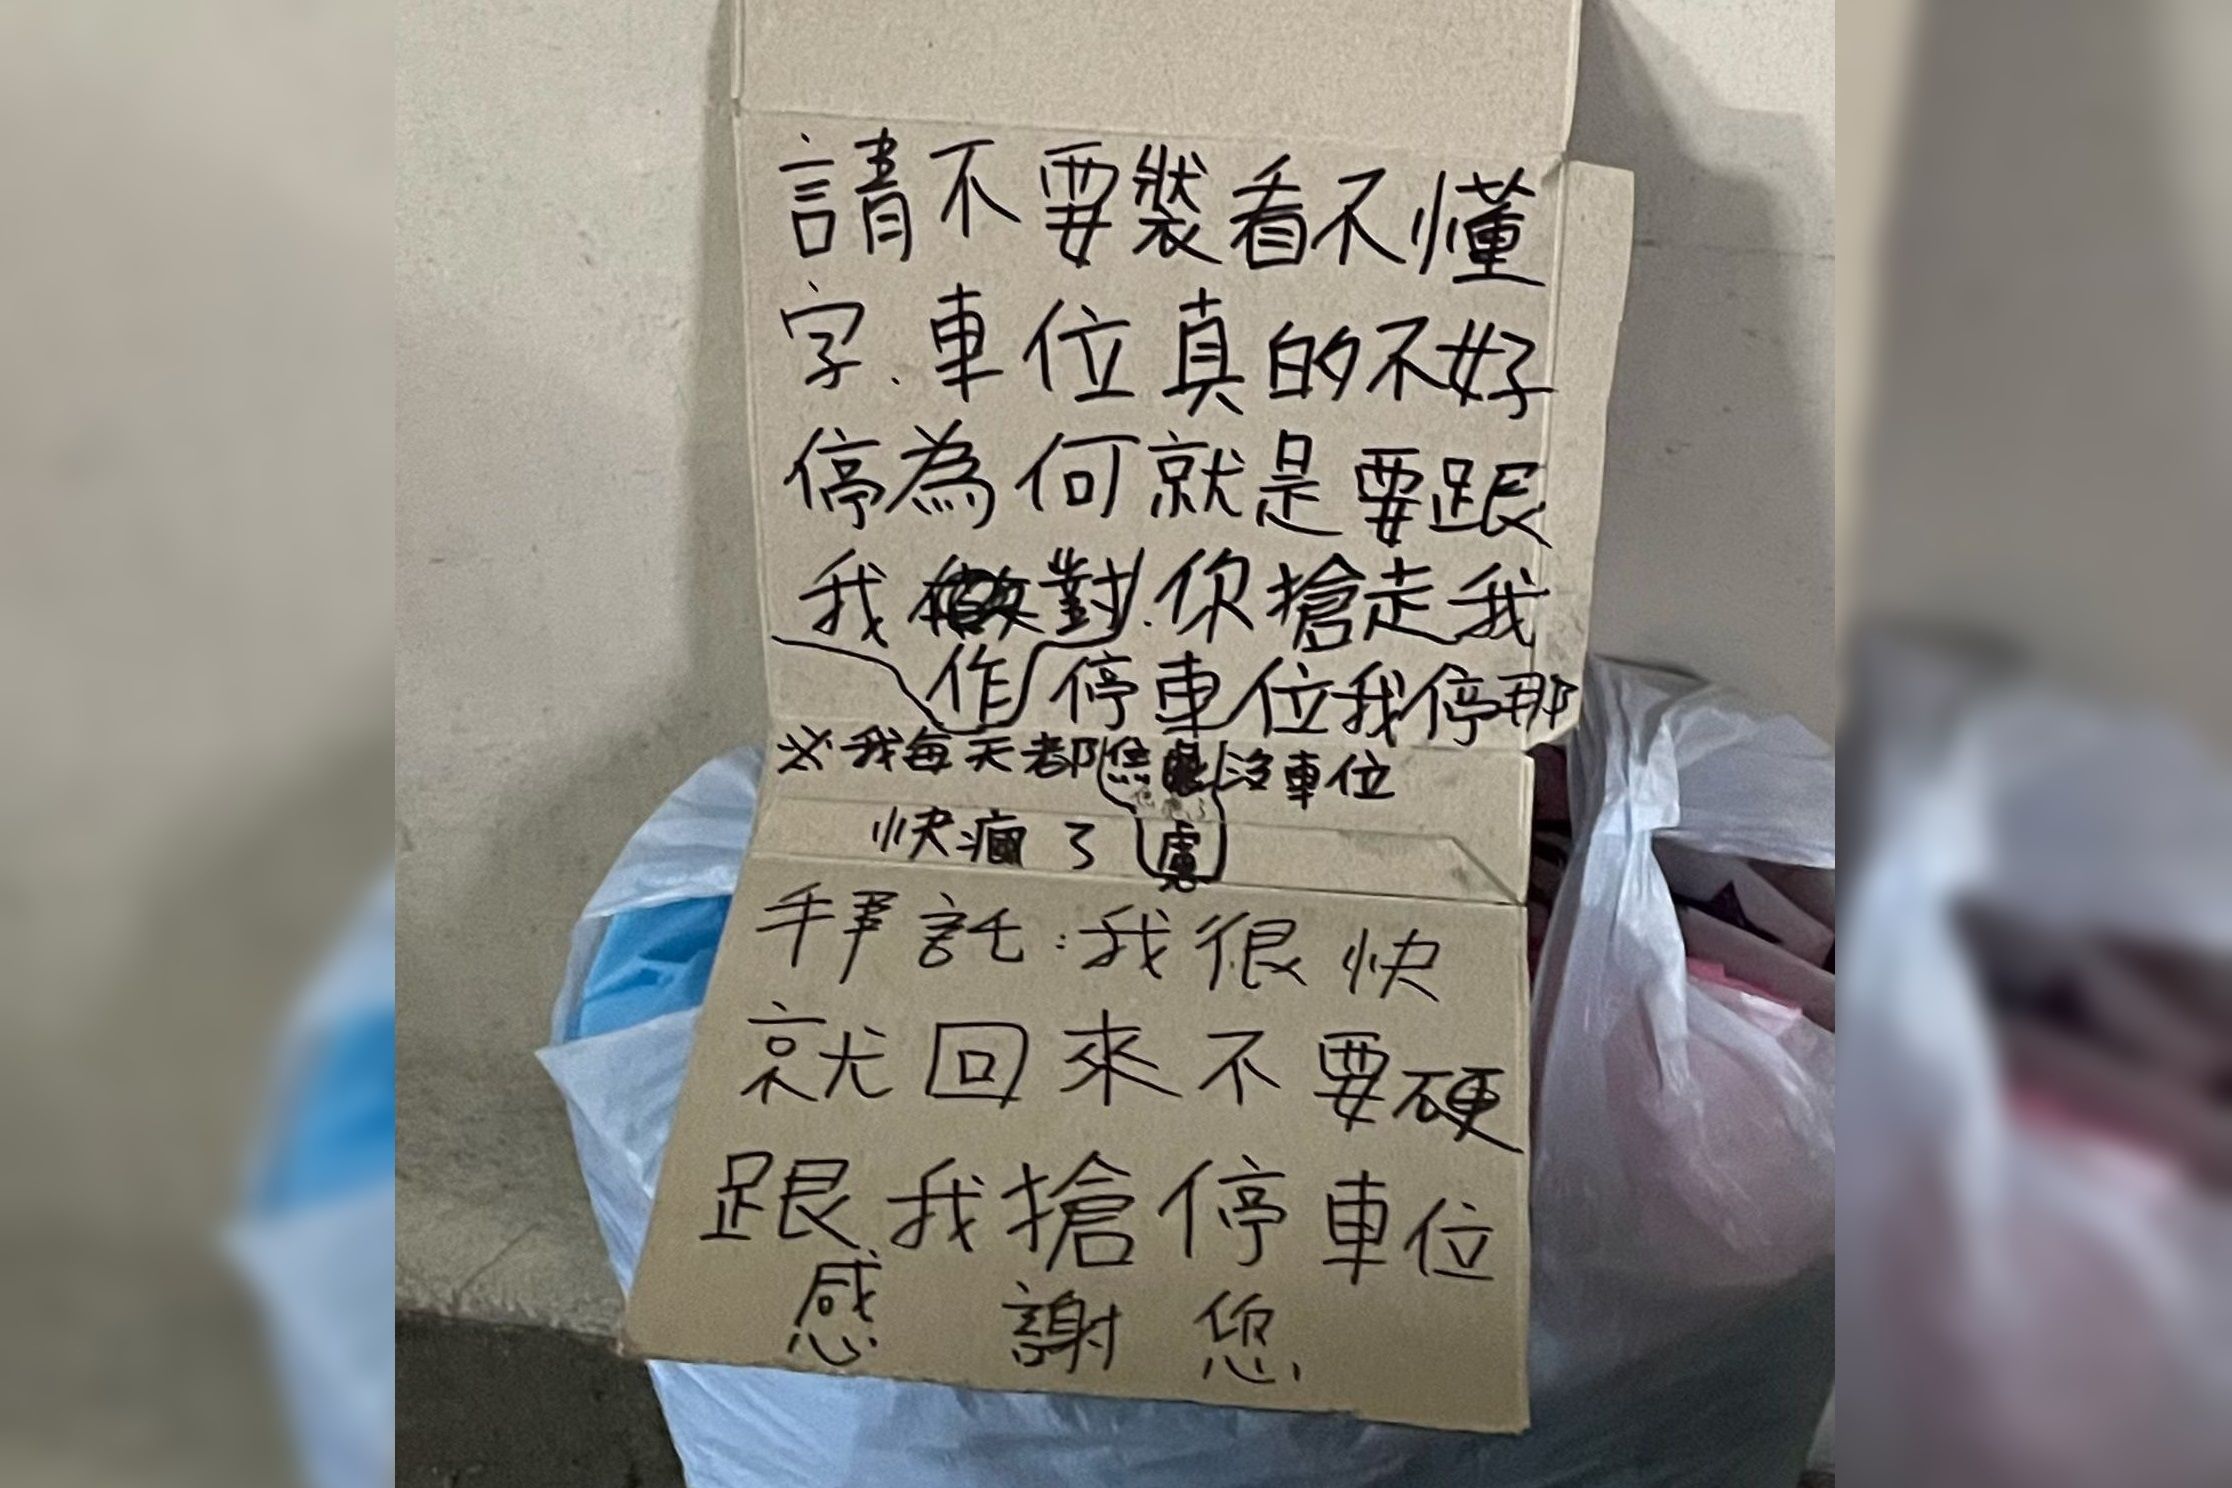 請不要裝看不懂
字.車位真的不好
停為何就是要跟
我作對.你搶走我
停車位我停那
※我每天都焦慮沒車位
快瘋了
拜託:我很快
就回來不要硬
跟我搶停車位
感謝您